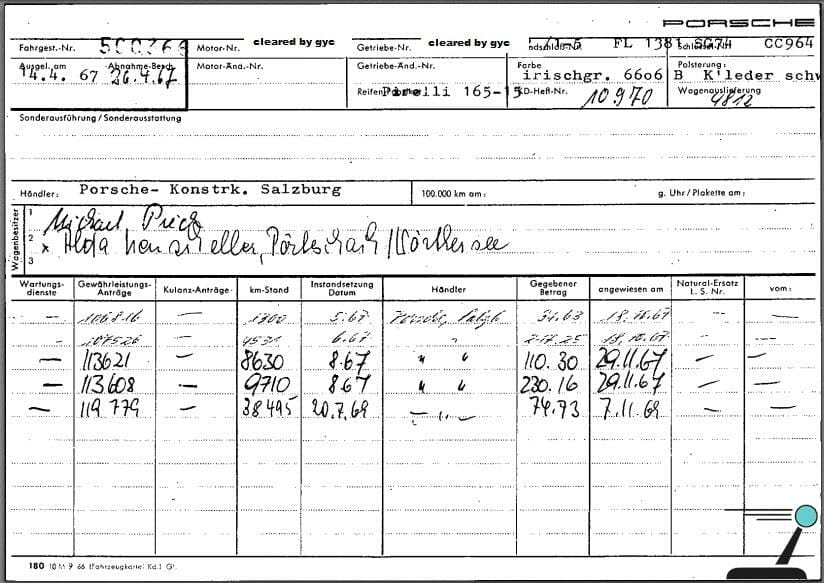 PORSCHE
Fahrgest.-Nr. 500366 Motor-Nr. cleared by gyc Getriebe-Nr. cleared by gyc FL 1381 CC964
Ausgel. am 14.4. 67 Abnahme-Besch. 26.4.67 Motor-Änd.-Nr. Getriebe-Änd.-Nr. Farbe irischgr. 6606 Polsterung: B K'leder schw
Reifen Pirelli 165-15 KD-Heft-Nr. 10970 Wagenauslieferung 4812
Sonderausführung / Sonderausstattung
Händler: Porsche- Konstrk. Salzburg 100.000 km am: g. Uhr / Plakette am:
Wagenbesitzer
1 Michael
2 x
3
Wartungs-dienste Gewährleistungs-Anträge Kulanz-Anträge km-Stand Instandsetzung Datum Händler Gegebener Betrag angewiesen am Natural-Ersatz L. S. Nr. vom:
— 106816 — 1300 5.67 Porsche, Salzb 34.63 18.10.67 — —
- 107526 — 4531 6.67 18.10.67 — —
— 113621 — 8630 8.67 " " 110.30 29.11.67 — —
— 113608 — 9710 8.67 " " 230.16 29.11.67 — —
— 119 779 — 38495 20.7.69 — " — 74.93 7.11.69 — —
180 10 M 9 66 (Fahrzeugkartei Kd.) Gt.